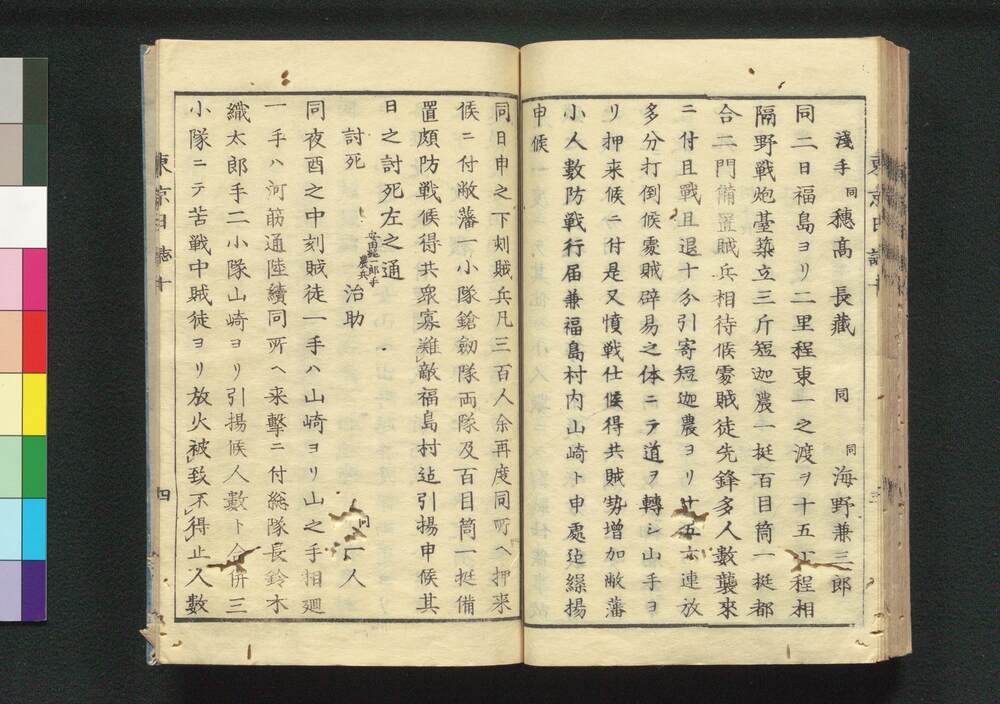 淺手 同 穗髙 長藏 同 同 海野兼三郎
同二日福島ヨリ二里程東一之渡ヲ十五丁程相
隔野戰炮䑓築立三斤短迦農一挺百目筒一挺都
合二門備置賊兵相待候䖏賊徒先鋒多人數襲來
ニ付且戰且退十分引寄短迦農ヨリ廿五六連放
多分打倒候䖏賊辟易之体ニテ道ヲ轉シ山手ヨ
リ押来候ニ付是又憤戦仕候得共賊勢增加敝藩
小人數防戰行届兼福島村内山崎ト申處迠繰揚
申候
同日申之下刻賊兵凡三百人余再度同所ヘ押来
候ニ付敝藩一小隊鎗劔隊両隊及百目筒一挺備
置頗防戦候得共衆寡難敵福島村迠引揚申候其
日之討死左之通
討死 安田純一郎手農兵 治助 同 一人
同夜酉之中刻賊徒一手ハ山崎ヨリ山之手相廻
一手ハ河筋通陸續同所ヘ来撃ニ付総隊長鈴木
織太郎手二小隊山崎ヨリ引揚候人數ト合併三
小隊ニテ苦戦中賊徒ヨリ放火被致不得止人数
東京日誌十
四